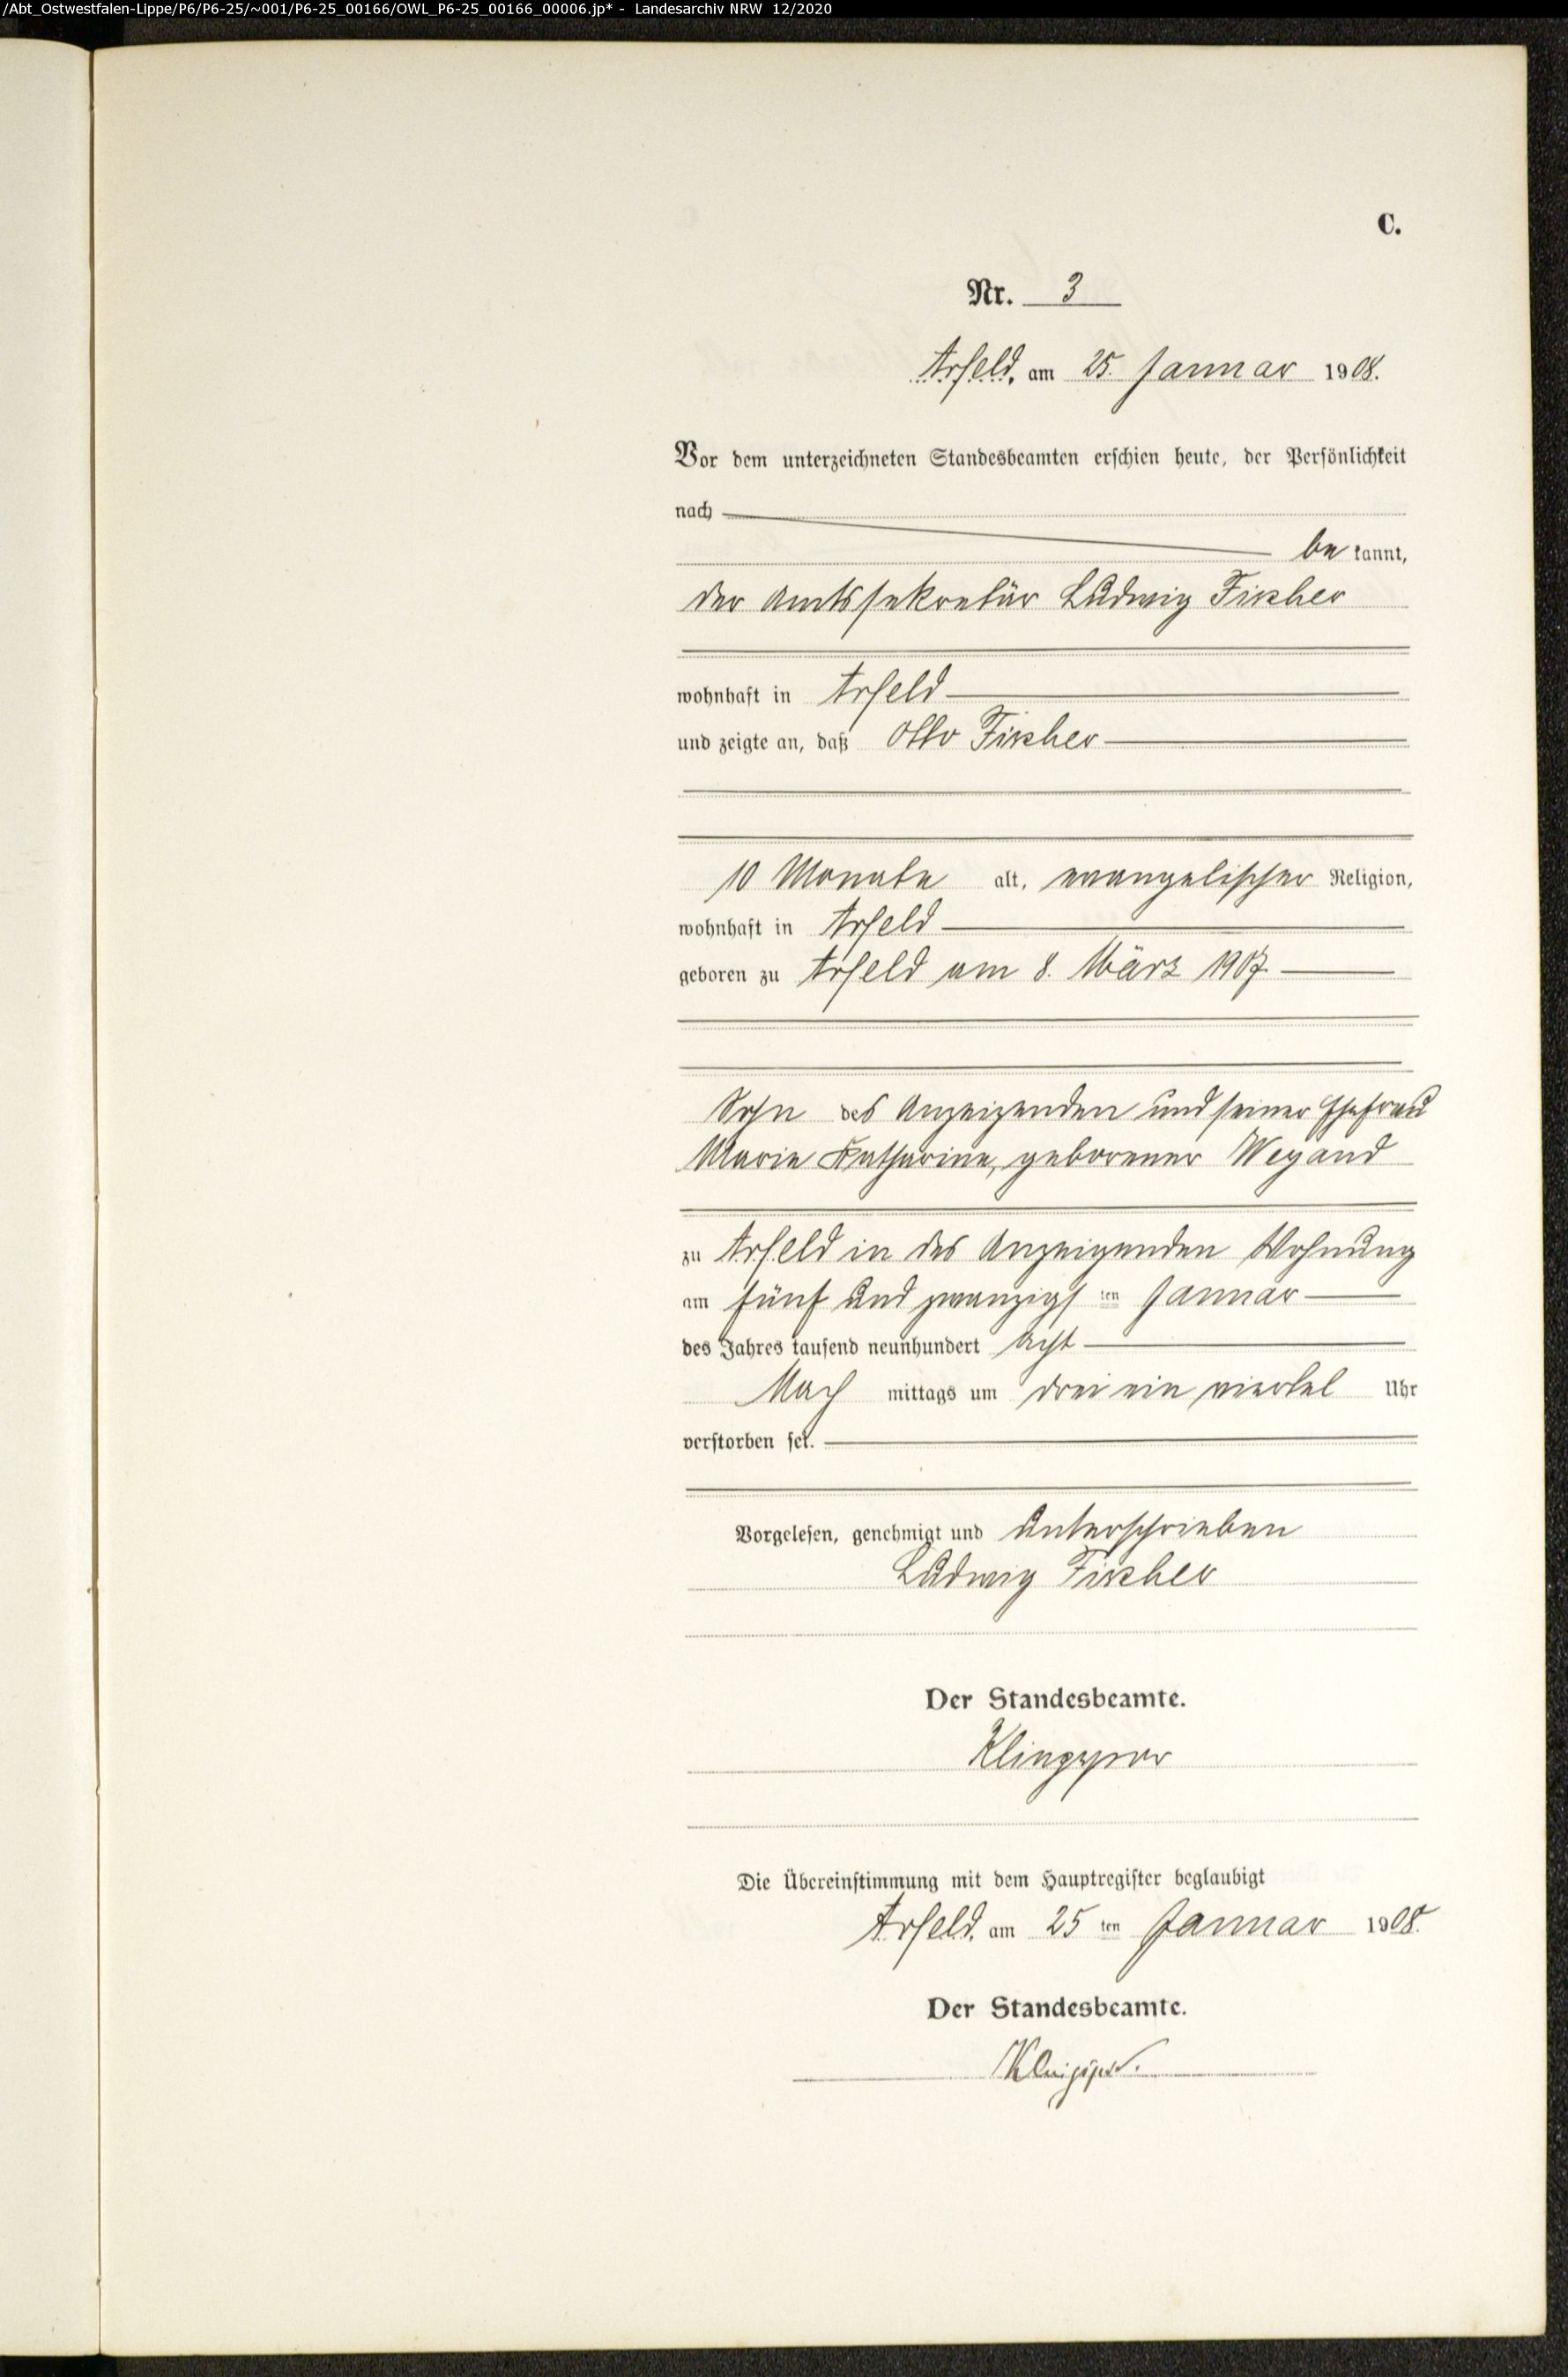 /Abt_Ostwestfalen-Lippe/P6/P6-25/~001/P6-25_00166/OWL_P6-25_00166_00006.jp* - Landesarchiv NRW 12/2020
C.
Nr. 3
Arfeld, am 25. Januar 1908.
Vor dem unterzeichneten Standesbeamten erschien heute, der Persönlichkeit
nach
be kannt,
der Amtssekretär Ludwig Fischer
wohnhaft in Arfeld
und zeigte an, daß Otto Fischer
10 Monate alt, evangelischer Religion,
wohnhaft in Arfeld
geboren zu Arfeld am 8. März 1907.
Sohn des Anzeigenden und seiner Ehefrau
Marie Katharine, geborener Weyand
zu Arfeld in des Anzeigenden Wohnung
am fünf und zwanzigs ten Januar
des Jahres tausend neunhundert acht
Nach mittags um drei ein viertel Uhr
verstorben sei.
Vorgelesen, genehmigt und unterschrieben
Ludwig Fischer
Der Standesbeamte.
Die Übereinstimmung mit dem Hauptregister beglaubigt
Arfeld, am 25 ten Januar 1908.
Der Standesbeamte.